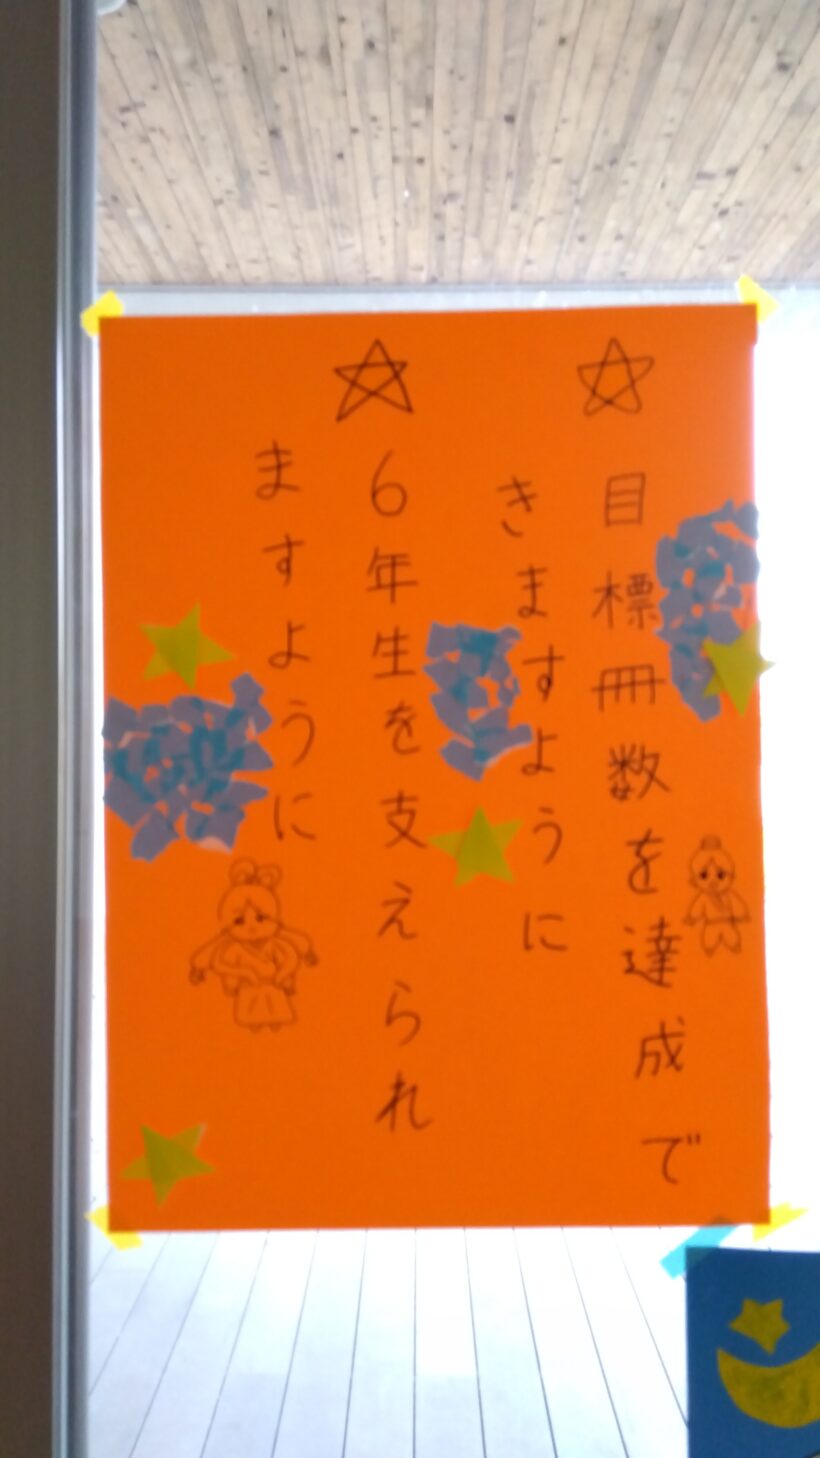 ☆目標冊数を達成で
きますように
☆6年生を支えられ
ますように